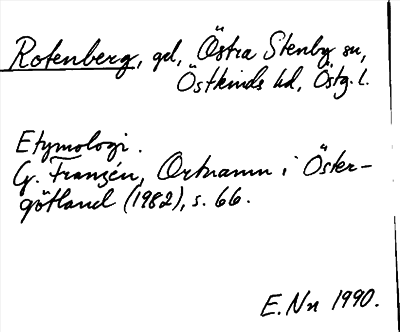 Rotenberg, gd, Östra Stenby sn,
Östkinds hd, Östg. l.
Etymologi.
G. Franzén, Ortnamn i Öster-
götland (1982), s. 66.
E. Nn 1990.